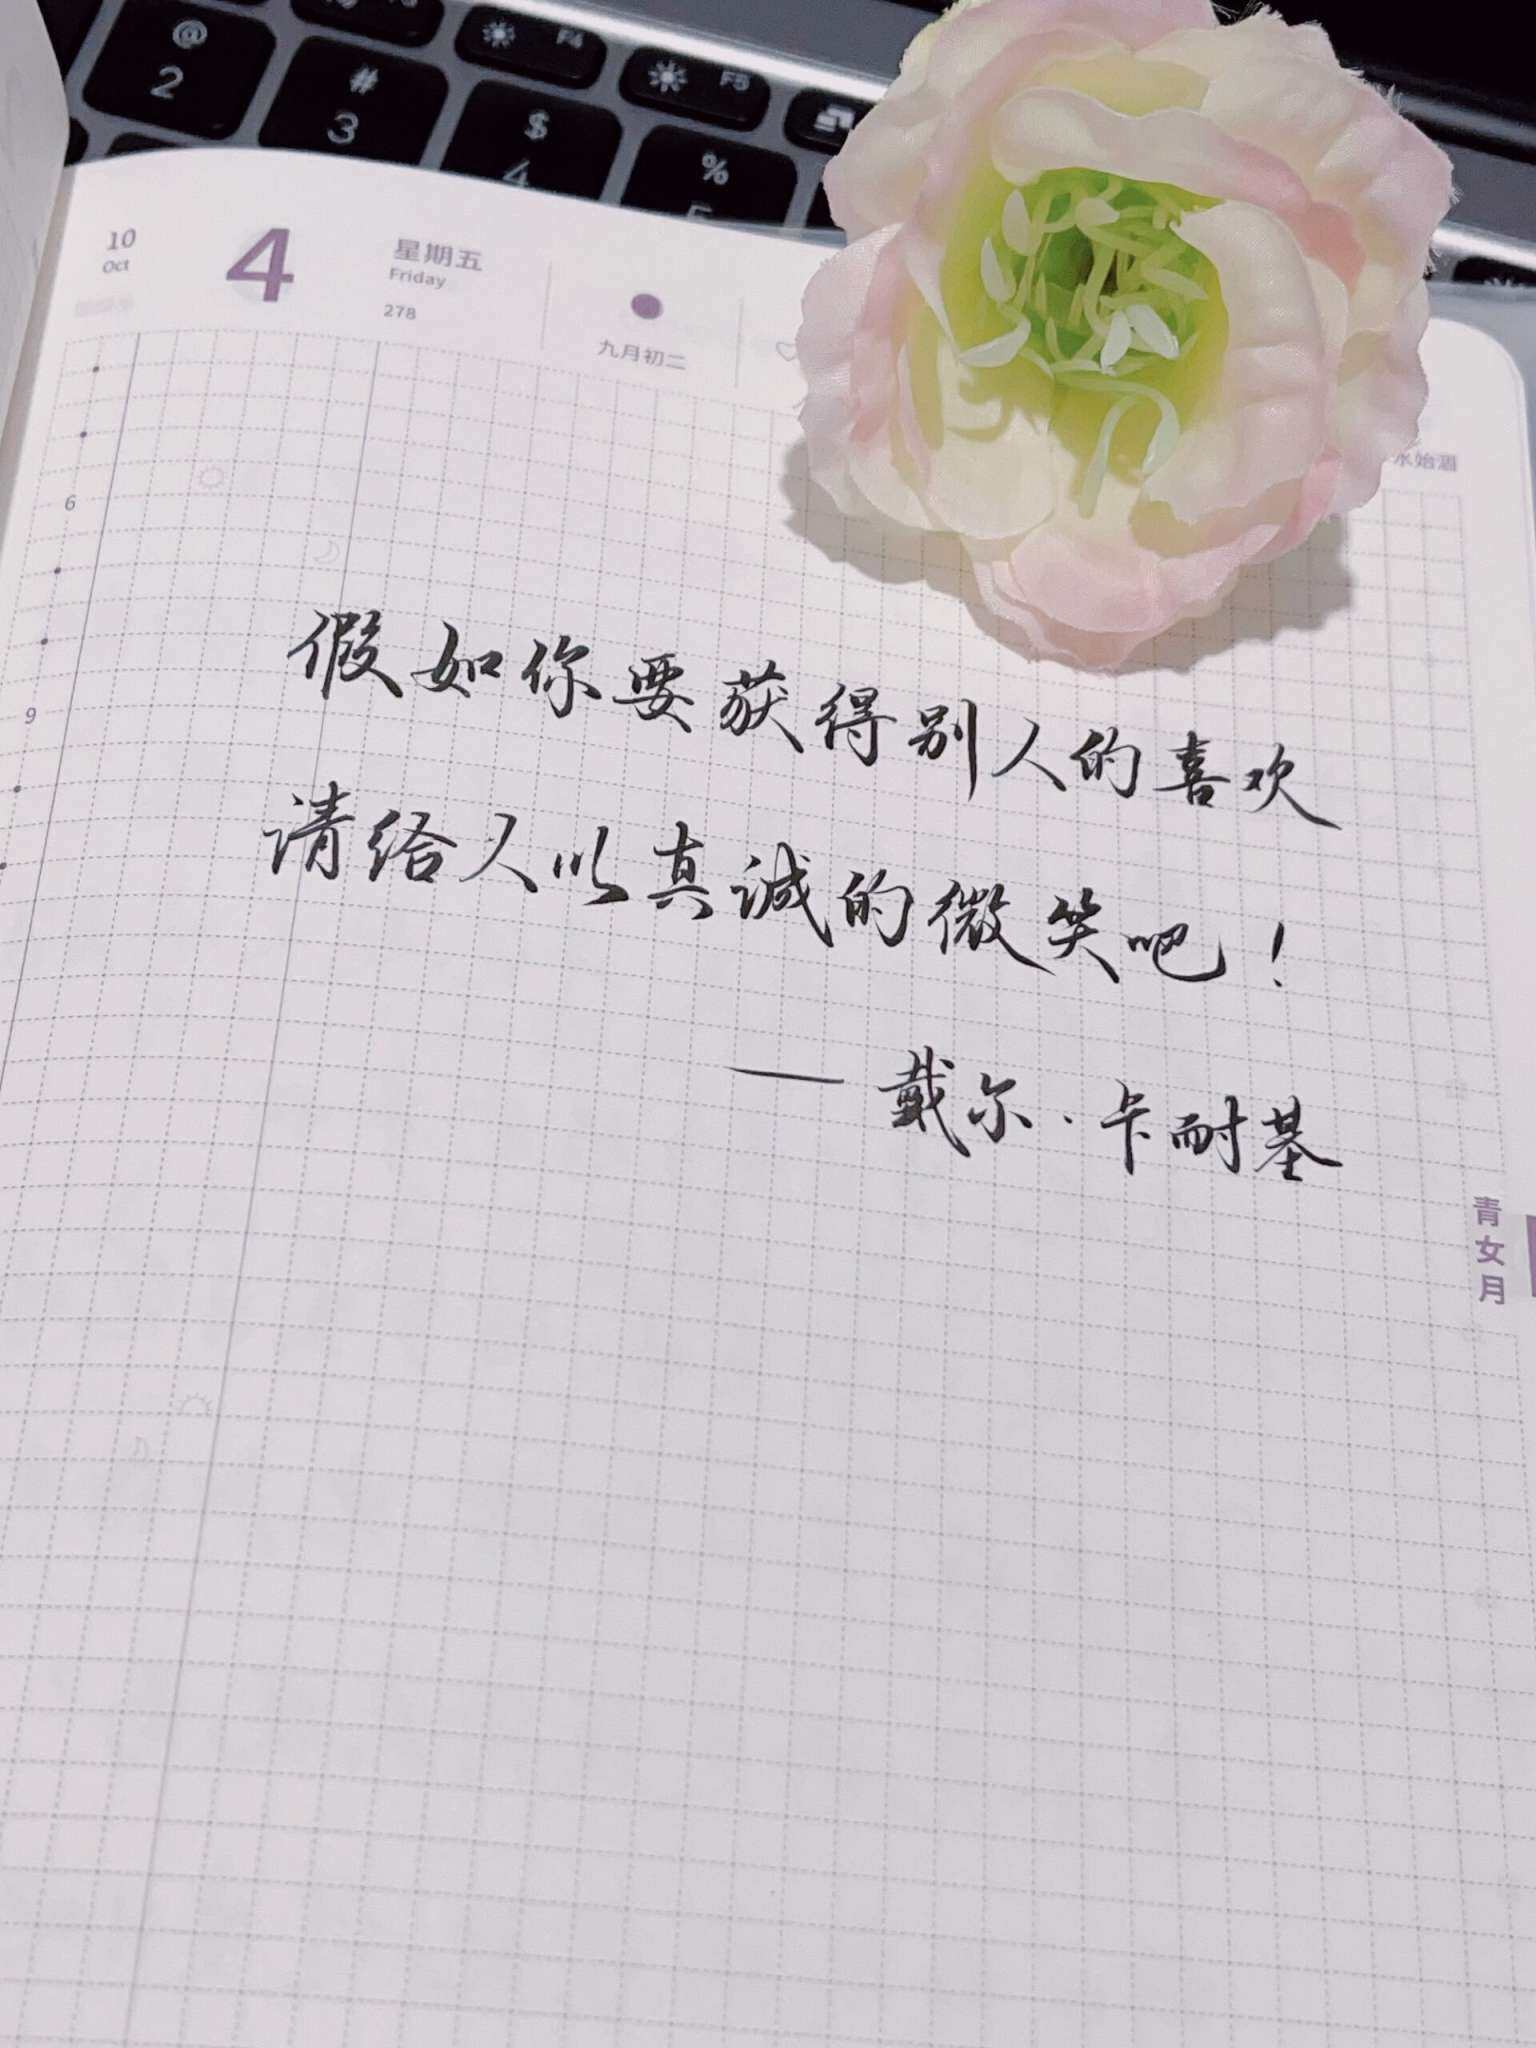 @
2
#
3
$
4
F4
%
5
F5
10
Oct
4
星期五
Friday
278
九月初二
水始涸
6
9
假如你要获得别人的喜欢
请给人以真诚的微笑吧！
—戴尔·卡耐基
青女月